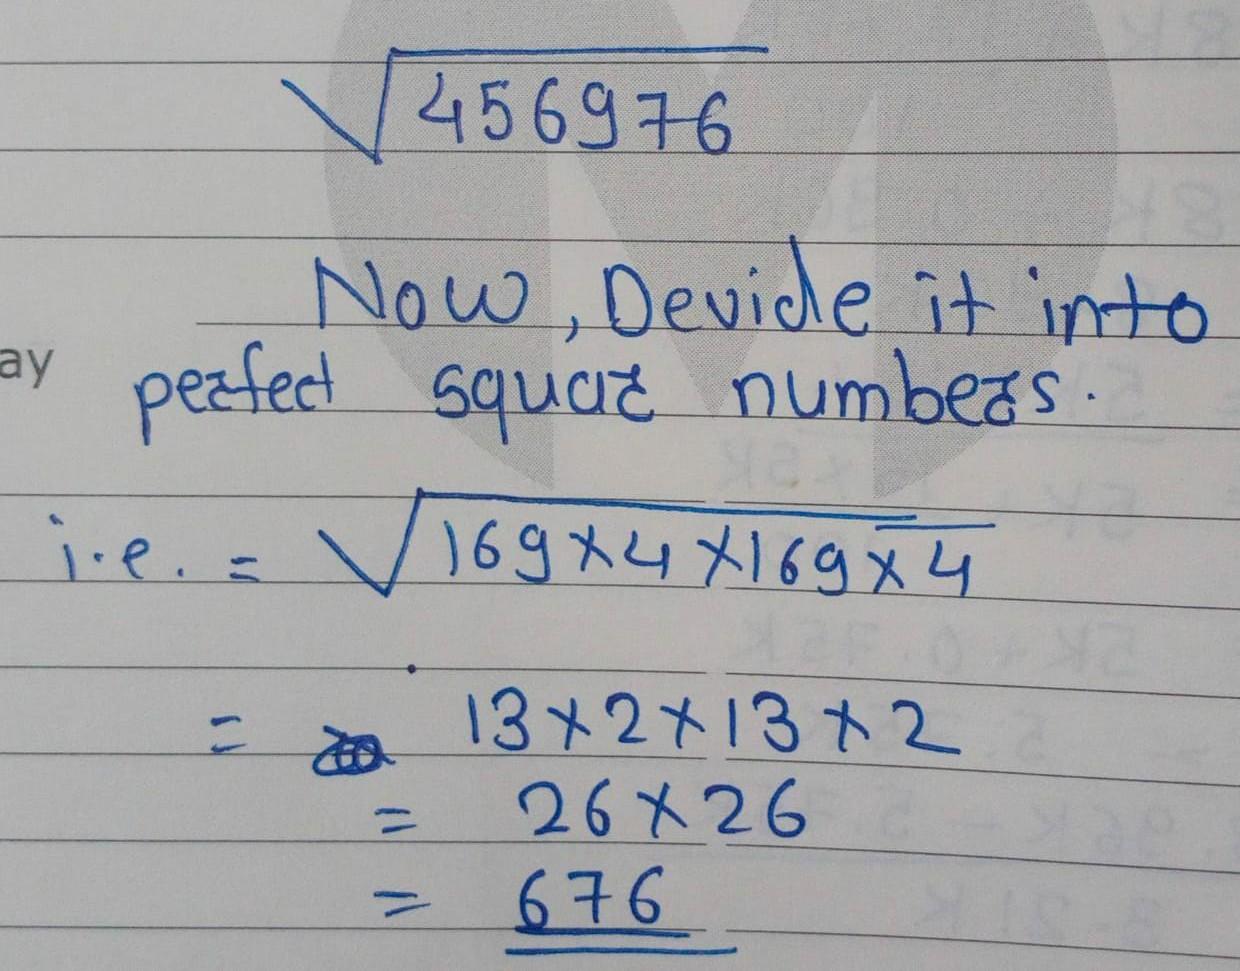 √456976
Now, Devide it into
ay
perfect squar numbers.
i.e. = √169×4×169×4
= 13×2×13×2
= 26×26
= 676